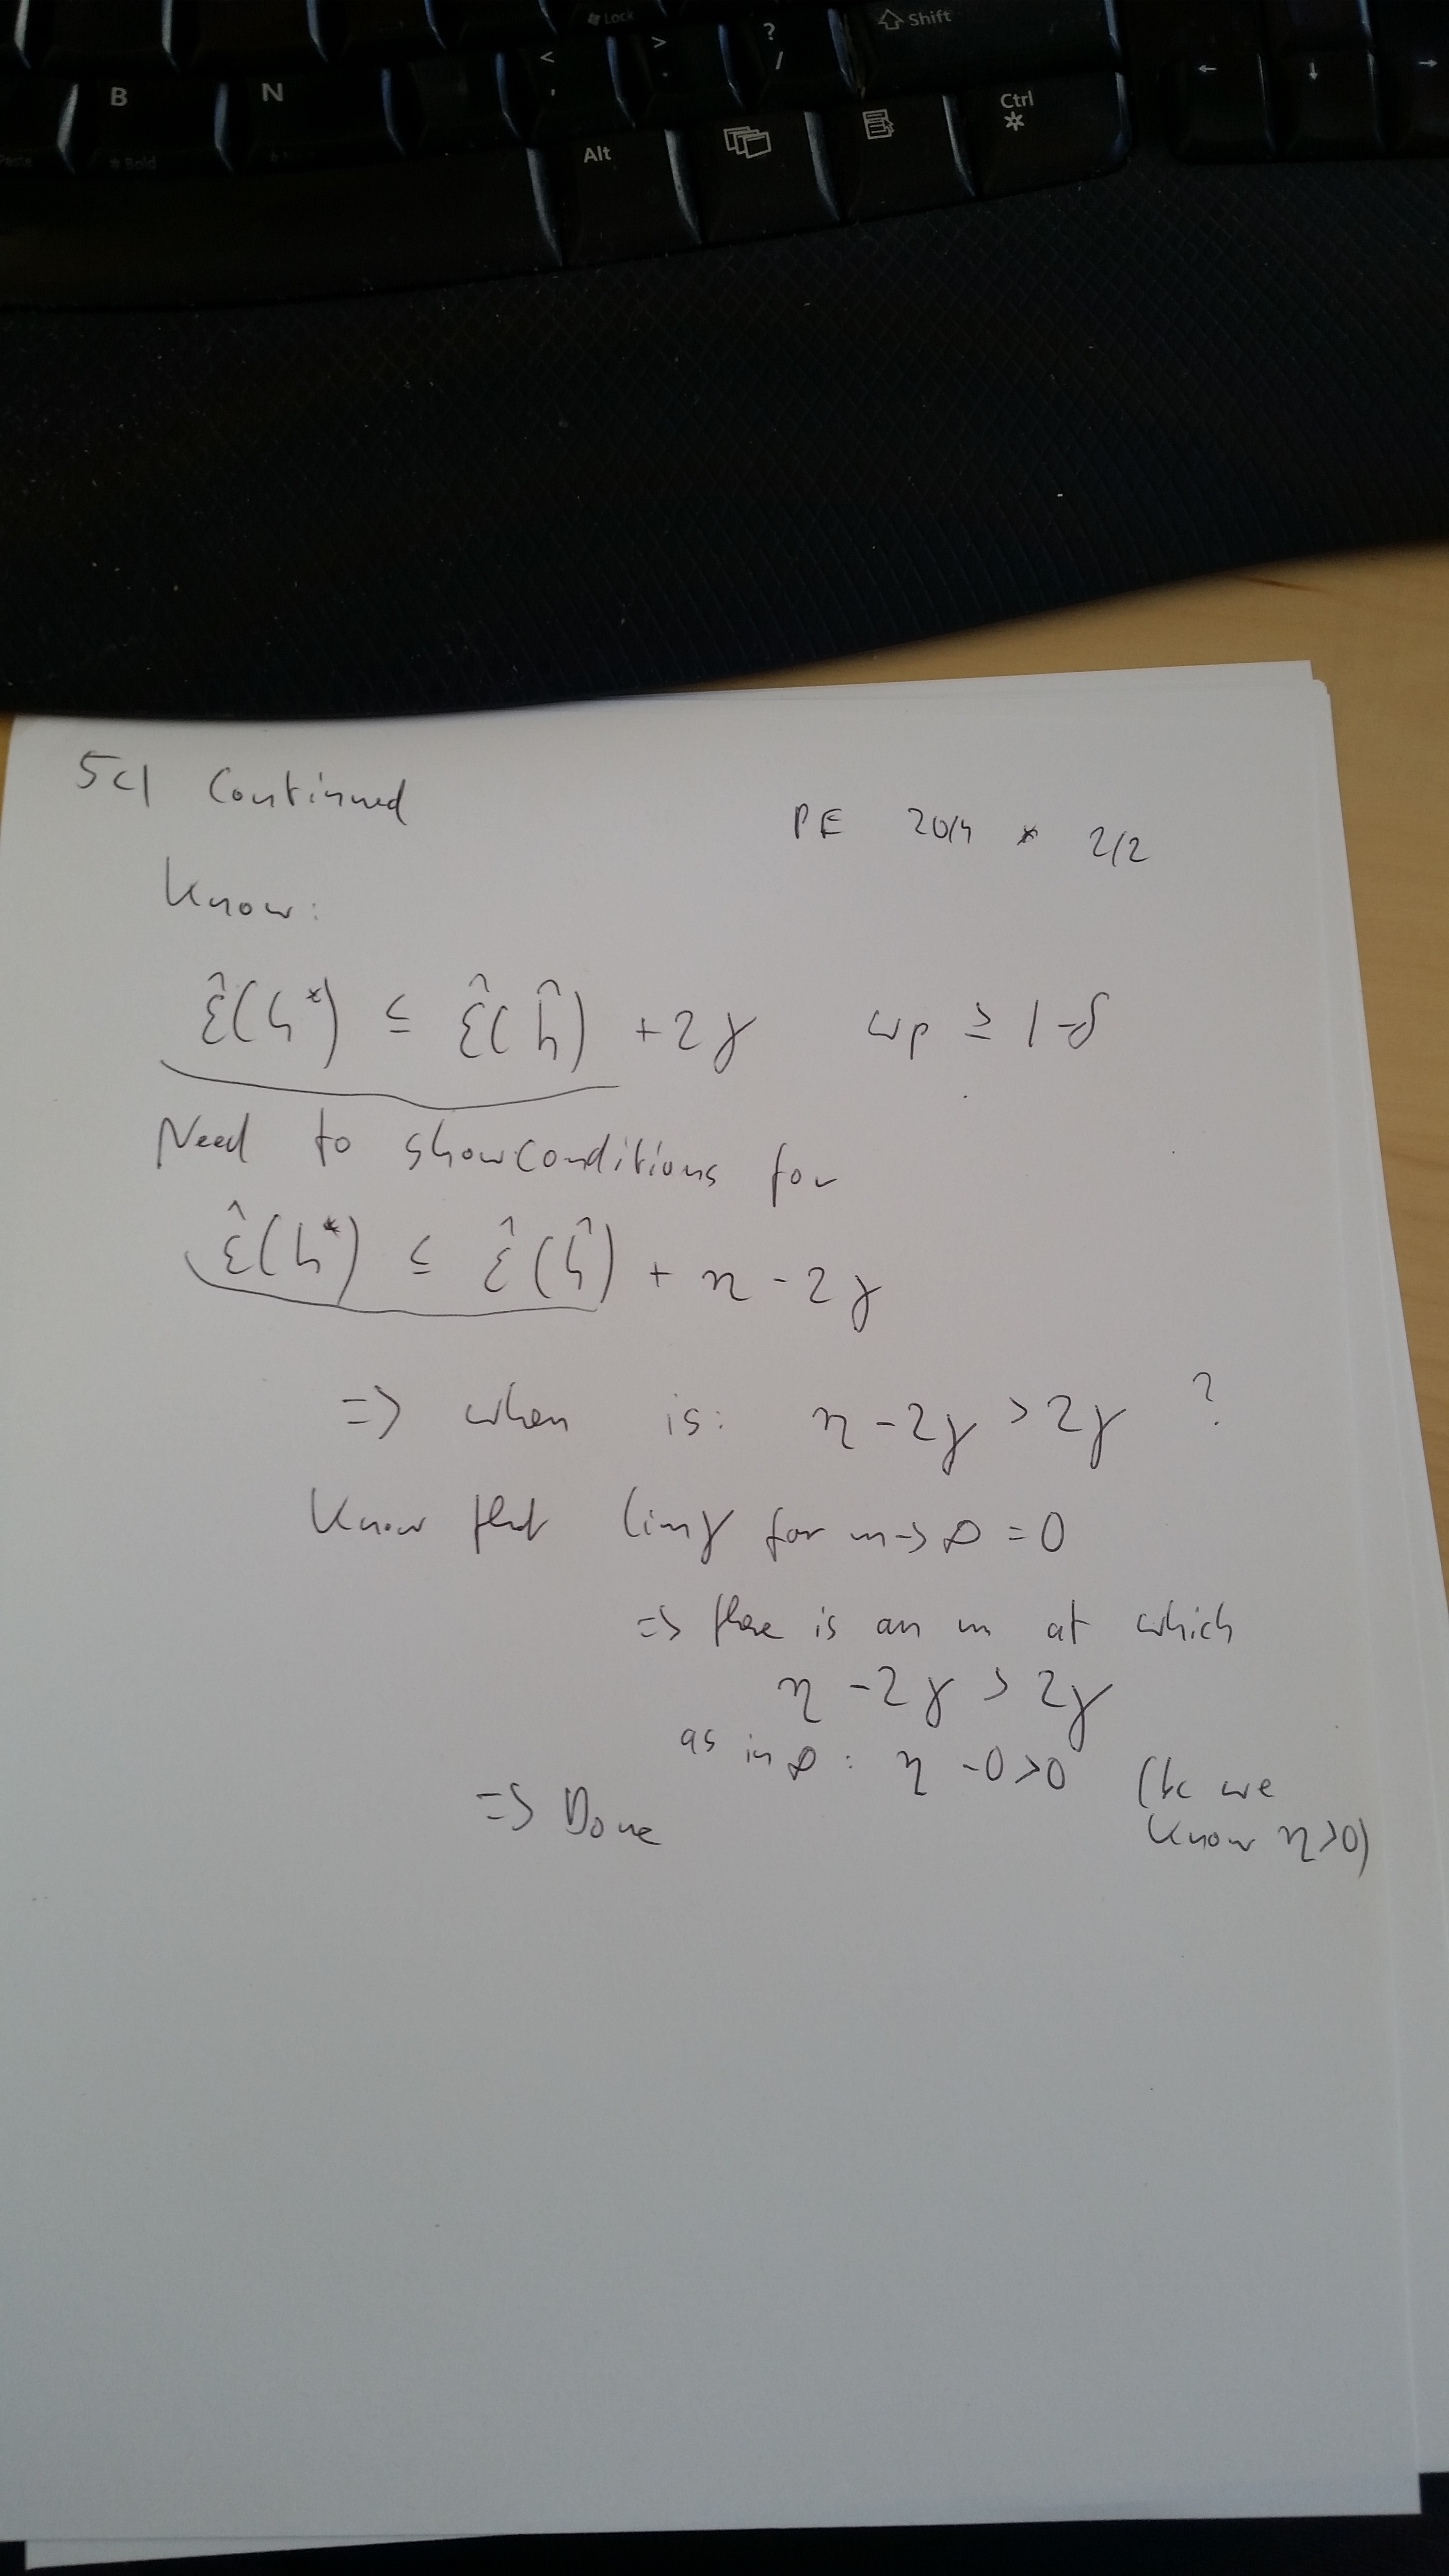 Lock
Shift
B
N
< ,
> .
? /
← ↓ →
Paste
Bold
Alt
Ctrl
5c) Continued
PE 2014 * 2/2
Know:
ε̂(h*) ≤ ε̂(ĥ) + 2γ wp ≥ 1-δ
Need to show conditions for
ε̂(h*) ≤ ε̂(ĥ) + η - 2γ
=> when is: η - 2γ > 2γ ?
Know that lim γ for m -> ∞ = 0
=> there is an m at which
η - 2γ > 2γ
as in ∞: η - 0 > 0 (bc we
know η > 0)
=> Done